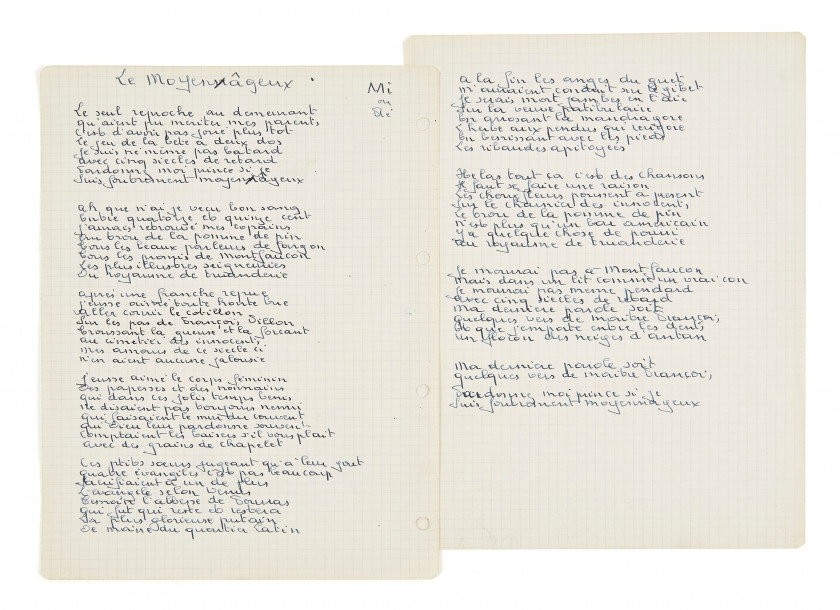 Le Moyennâgeux
Mi
ou
Ré
Le seul reproche au demeurant
qu'aient pu meriter mes parents,
c'est d'avoir pas joué plus tot
Le jeu de la bete à deux dos
Je suis né meme pas batard
avec cinq siecles de retard
Pardonnez moi prince si je
Suis foutrement moyennâgeux
Ah que n'ai je vecu bon sang
Entre quatorze et quinze cent
J'aurais retrouvé mes copains
Au trou de la pomme de pin
Tous les beaux parleurs de jargon
Tous les promis de Montfaucon
Les plus illustres seigneuries
Du royaume de truanderie
Après une franche repue
J'eusse aimé toute honte bue
aller courir le cotillon
Sur les pas de François Villon
Troussant la gueuse et la forçant
au cimetier des innocents,
Mes amours de ce siecle ci
n'en aient aucune jalousie
J'eusse aimé le corps féminin
Des papesses et des nonnains
qui dans ces jolis temps benis
ne disaient pas toujours nenni
qui faisaient le mur du couvent
qui Dieu leur pardonne souvent
Comptaient les baisers s'il vous plait
avec des grains de chapelet
Ces ptits soeurs jugeant qu'à leur gout
quatre evangiles c'est pas beaucoup
Sacrifiaient à un de plus
L'evangile selon Venus
Temoin l'abbesse de Pourras
qui fut qui reste et restera
La plus glorieuse putain
De moine du quartier Latin
A la fin les anges du guet
m'auraient conduit sur le gibet
Je serais mort jambes en l'air
Sur la veuve patibulaire
En arrosant la mandragore
L'herbe aux pendus qui revigore
En benissant avec les pieds
Les ribaudes apitoyées
Helas tout ça c'est des chansons
Il faut se faire une raison
Les choux fleurs poussent à present
Sur le charnier des innocents,
Le trou de la pomme de pin
n'est plus qu'un bar americain
Y a quelque chose de pourri
au royaume de truanderie
Je mourrai pas à Montfaucon
Mais dans un lit comme un vrai con
Je mourrai pas meme pendard
avec cinq siecles de retard
Ma derniere parole soit
quelques vers de maitre François,
Et que j'emporte entre les dents
un flocon des neiges d'antan
Ma derniere parole soit
quelques vers de maitre François,
Pardonnez moi prince si je
Suis foutrement moyennageux